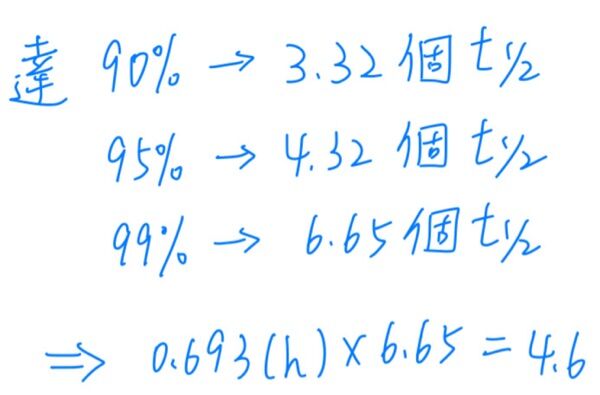 達 90% → 3.32個 t½
95% → 4.32個 t½
99% → 6.65個 t½
⇒ 0.693(h)×6.65=4.6